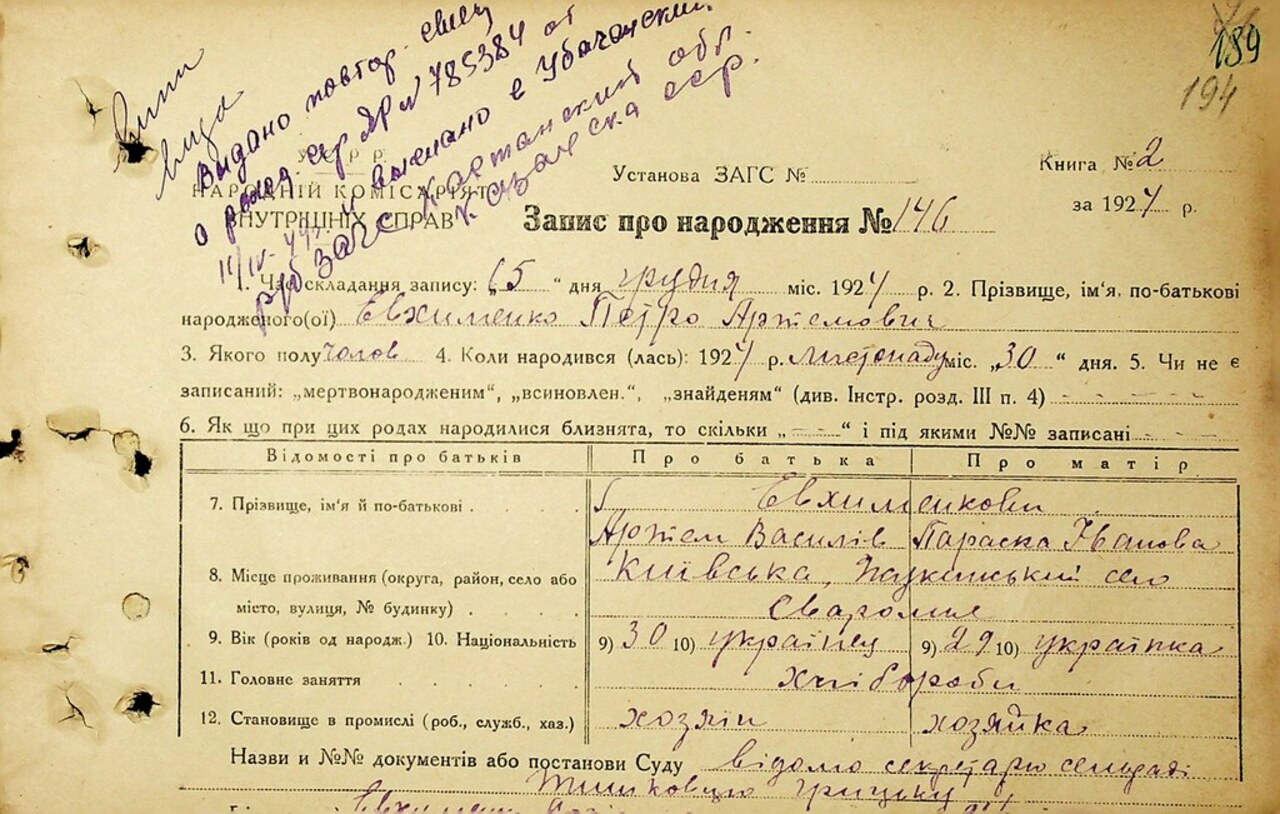 189
194
Видано повтор. свид
о рожд сер ЯР № 785384 от
11/IV- и выслано в Убаганский
рзб ЗАГС Кустанайский обл.
Казахска ССР.
У.С.Р.Р.
НАРОДНІЙ КОМІСАРІЯТ
ВНУТРІШНІХ СПРАВ
Установа ЗАГС №
Книга № 2
за 1924 р.
Запис про народження № 146
1. Час складання запису: „15“ дня грудня міс. 1924 р. 2. Прізвище, ім'я, по-батькові
народженого(ої) Евхименко Петро Артемович
3. Якого полу чолов 4. Коли народився (лась): 1924 р. листопаду міс. „30“ дня. 5. Чи не є
записаний: „мертвонародженим“, „всиновлен.“, „знайденям“ (див. Інстр. розд. III п. 4) - - - - -
6. Як що при цих родах народилися близнята, то скільки „- - -“ і під якими №№ записані - - -
Відомості про батьків Про батька Про матір
7. Прізвище, ім'я й по-батькові Евхименкови
Артем Василів Параска Іванова
8. Місце проживання (округа, район, село або Київська, село
місто, вулиця, № будинку) Сваромля
9. Вік (років од народж.) 10. Національність 9) 30 10) українец 9) 29 10) українка
11. Головне заняття Хлібороби
12. Становище в промислі (роб., служб., хаз.) хозяін хозяйка
Назви и №№ документів або постанови Суду відомо секретарю сельради
Евхименко